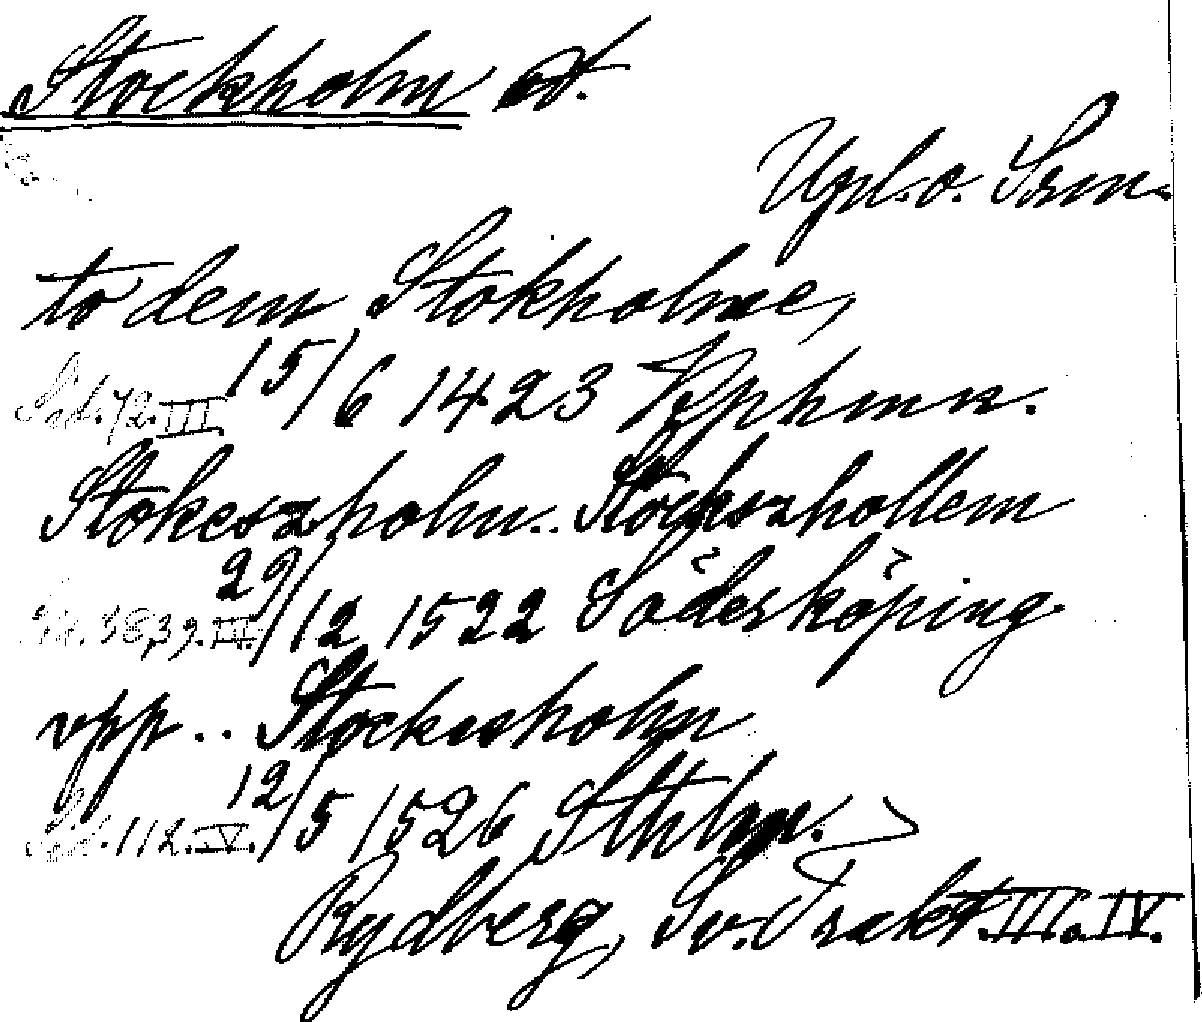 Stockholm st.
Upl. o. Srm.
to dem Stokholme,
Sid. 72. III. 15/6 1423 Kphmn.
Stokeszholm.. Stockszhollem
38, 39. III. 29/12 1522 Söderköping
vpp .. Stockesholm
Sid. 112. V. 12/5 1526 Sthlm.
Rydberg, Sv. Trakt. III o. IV.